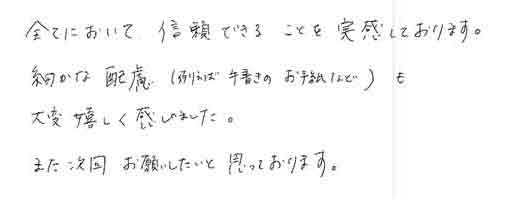 全てにおいて 信頼できる ことを 実感しております。
細かな 配慮 (例えば 手書きの お手紙など) も
大変 嬉しく 感じました。
また 次回 お願いしたいと 思っております。